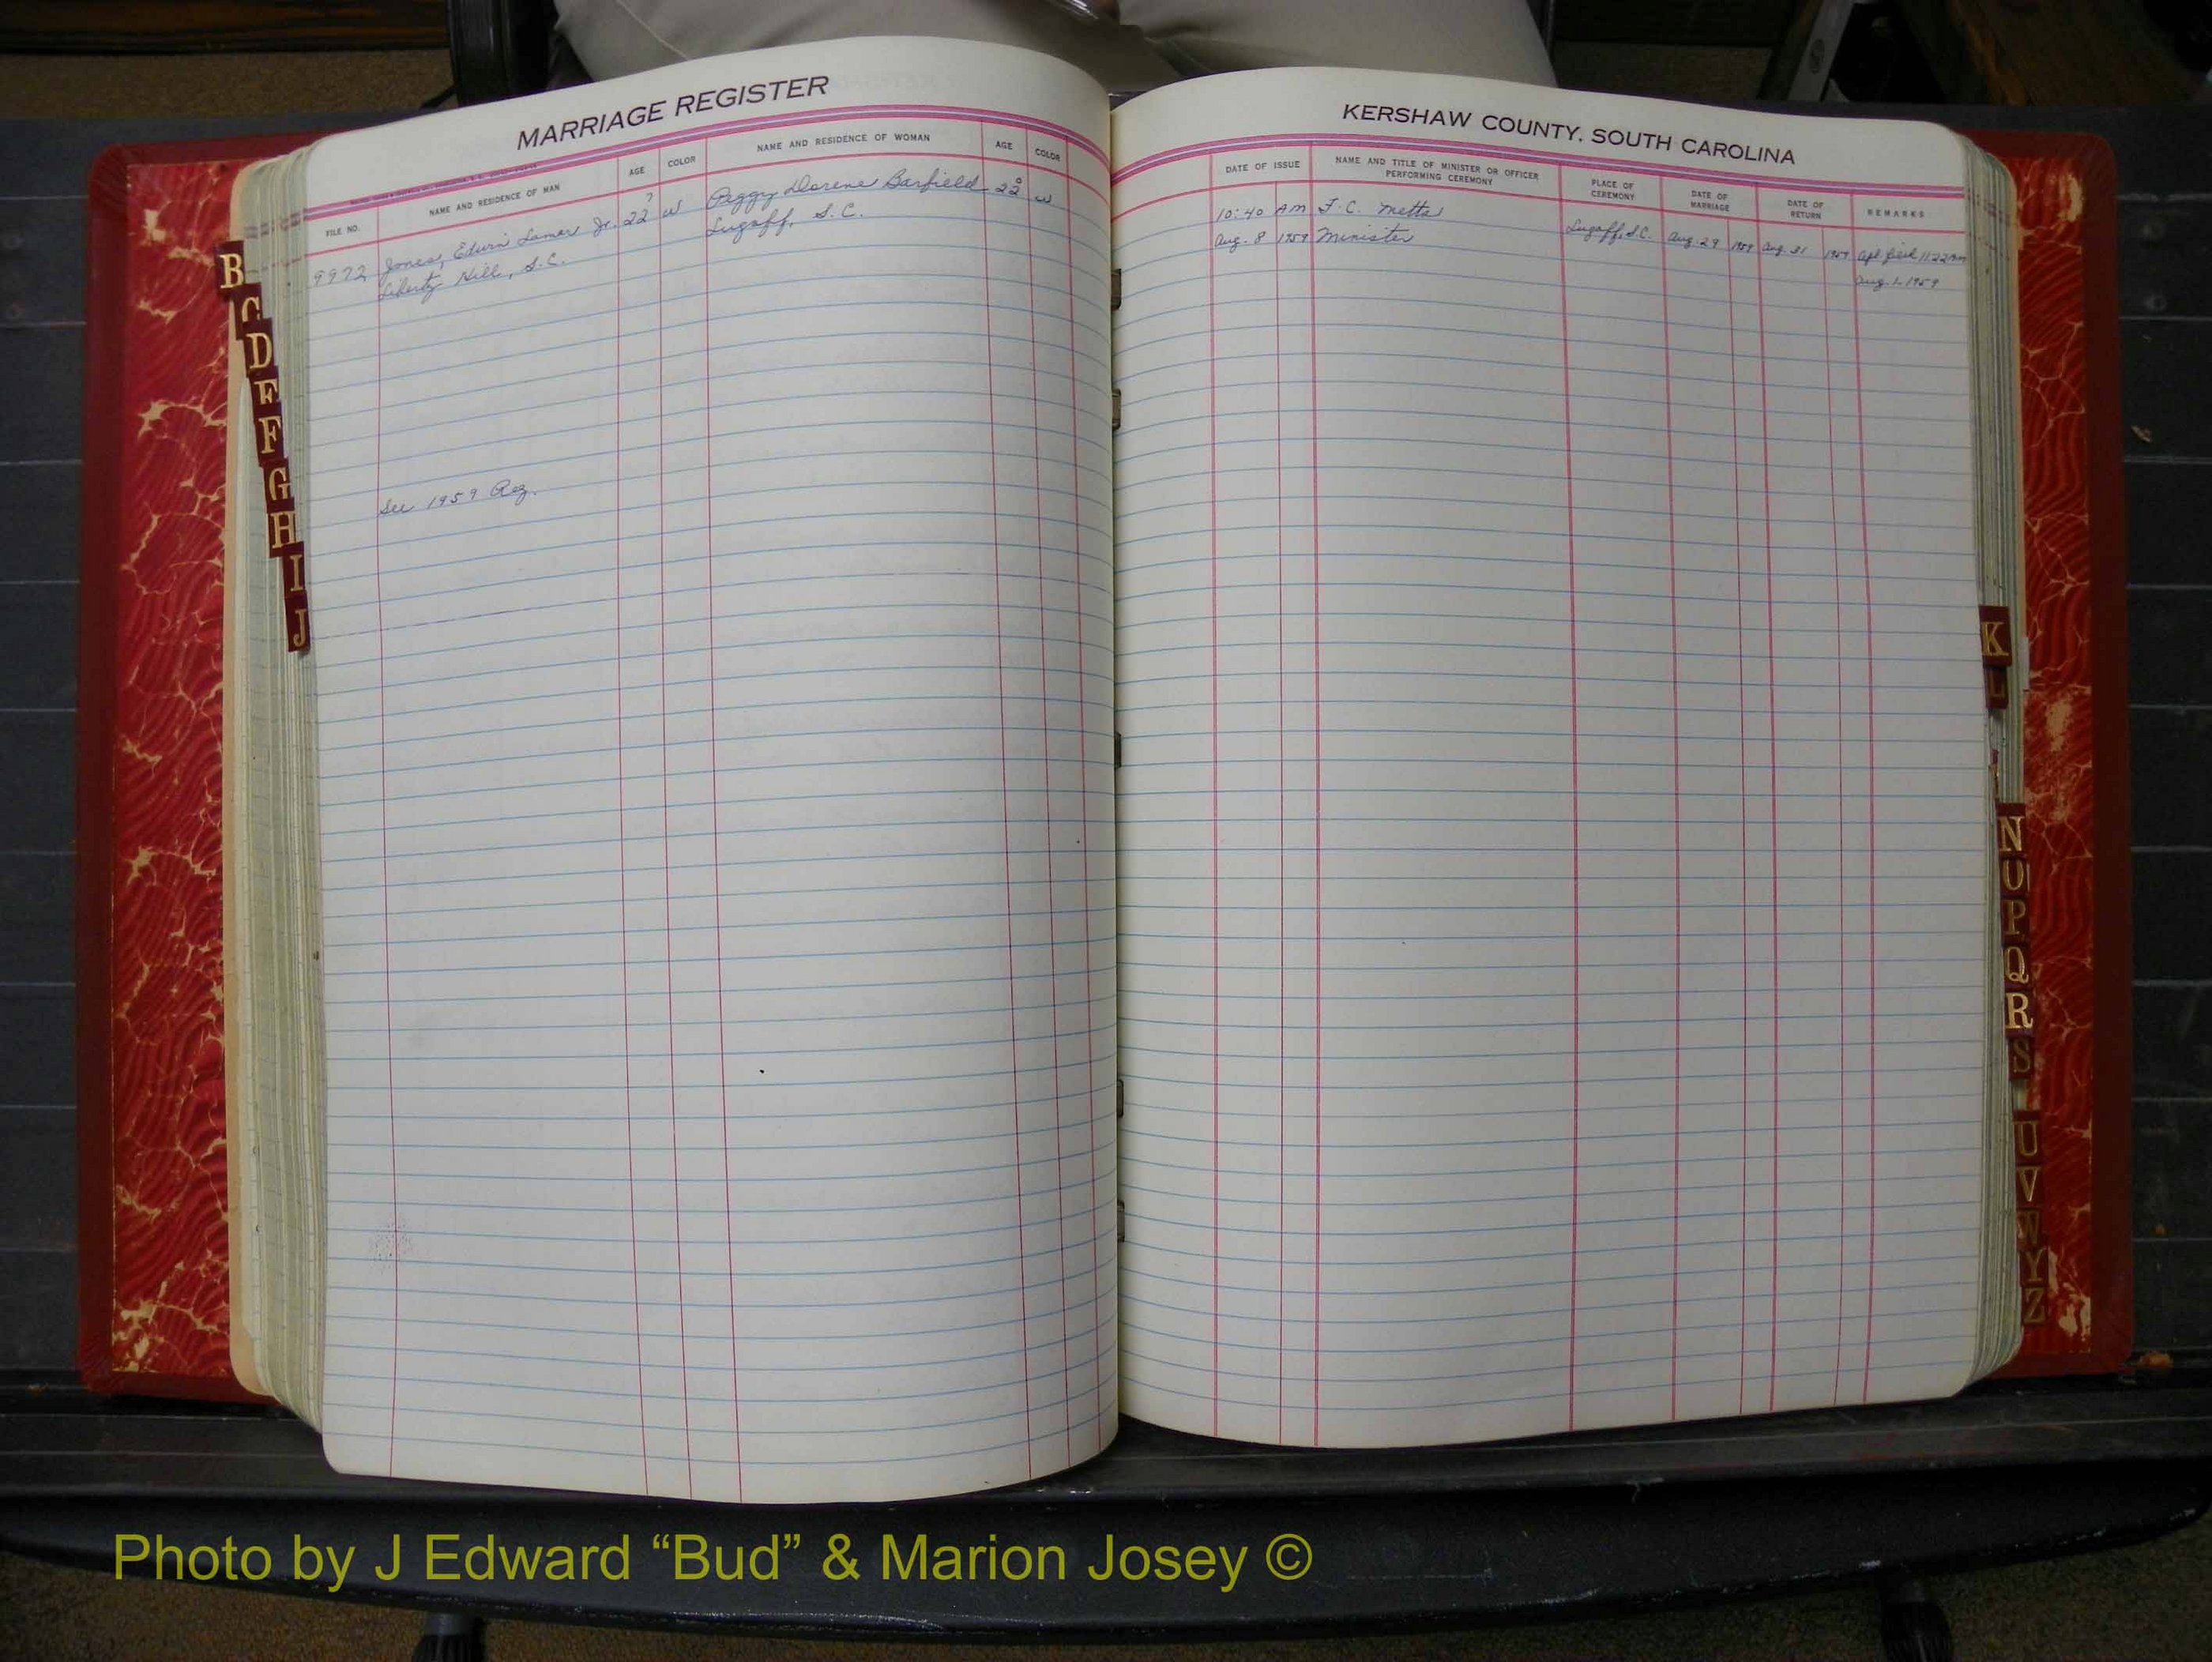 MARRIAGE REGISTER
FILE NO. NAME AND RESIDENCE OF MAN AGE COLOR NAME AND RESIDENCE OF WOMAN AGE COLOR
9972 Jones, Edwin Lamar Jr. 22 W Peggy Dorene Barfield 22 W
Liberty Hill, S.C. Lugoff, S.C.
See 1959 Reg.
KERSHAW COUNTY, SOUTH CAROLINA
DATE OF ISSUE NAME AND TITLE OF MINISTER OR OFFICER PERFORMING CEREMONY PLACE OF CEREMONY DATE OF MARRIAGE DATE OF RETURN REMARKS
10:40 AM
Aug. 8 1959 Minister Lugoff, S.C. Aug. 29 1959 Aug. 31 1959 Apl. filed 11:22 AM
Aug. 1, 1959
B
C
D
E
F
G
H
I
J
K
L
N
O
P
Q
R
S
U
V
W
Y
Z
Photo by J Edward “Bud” & Marion Josey ©